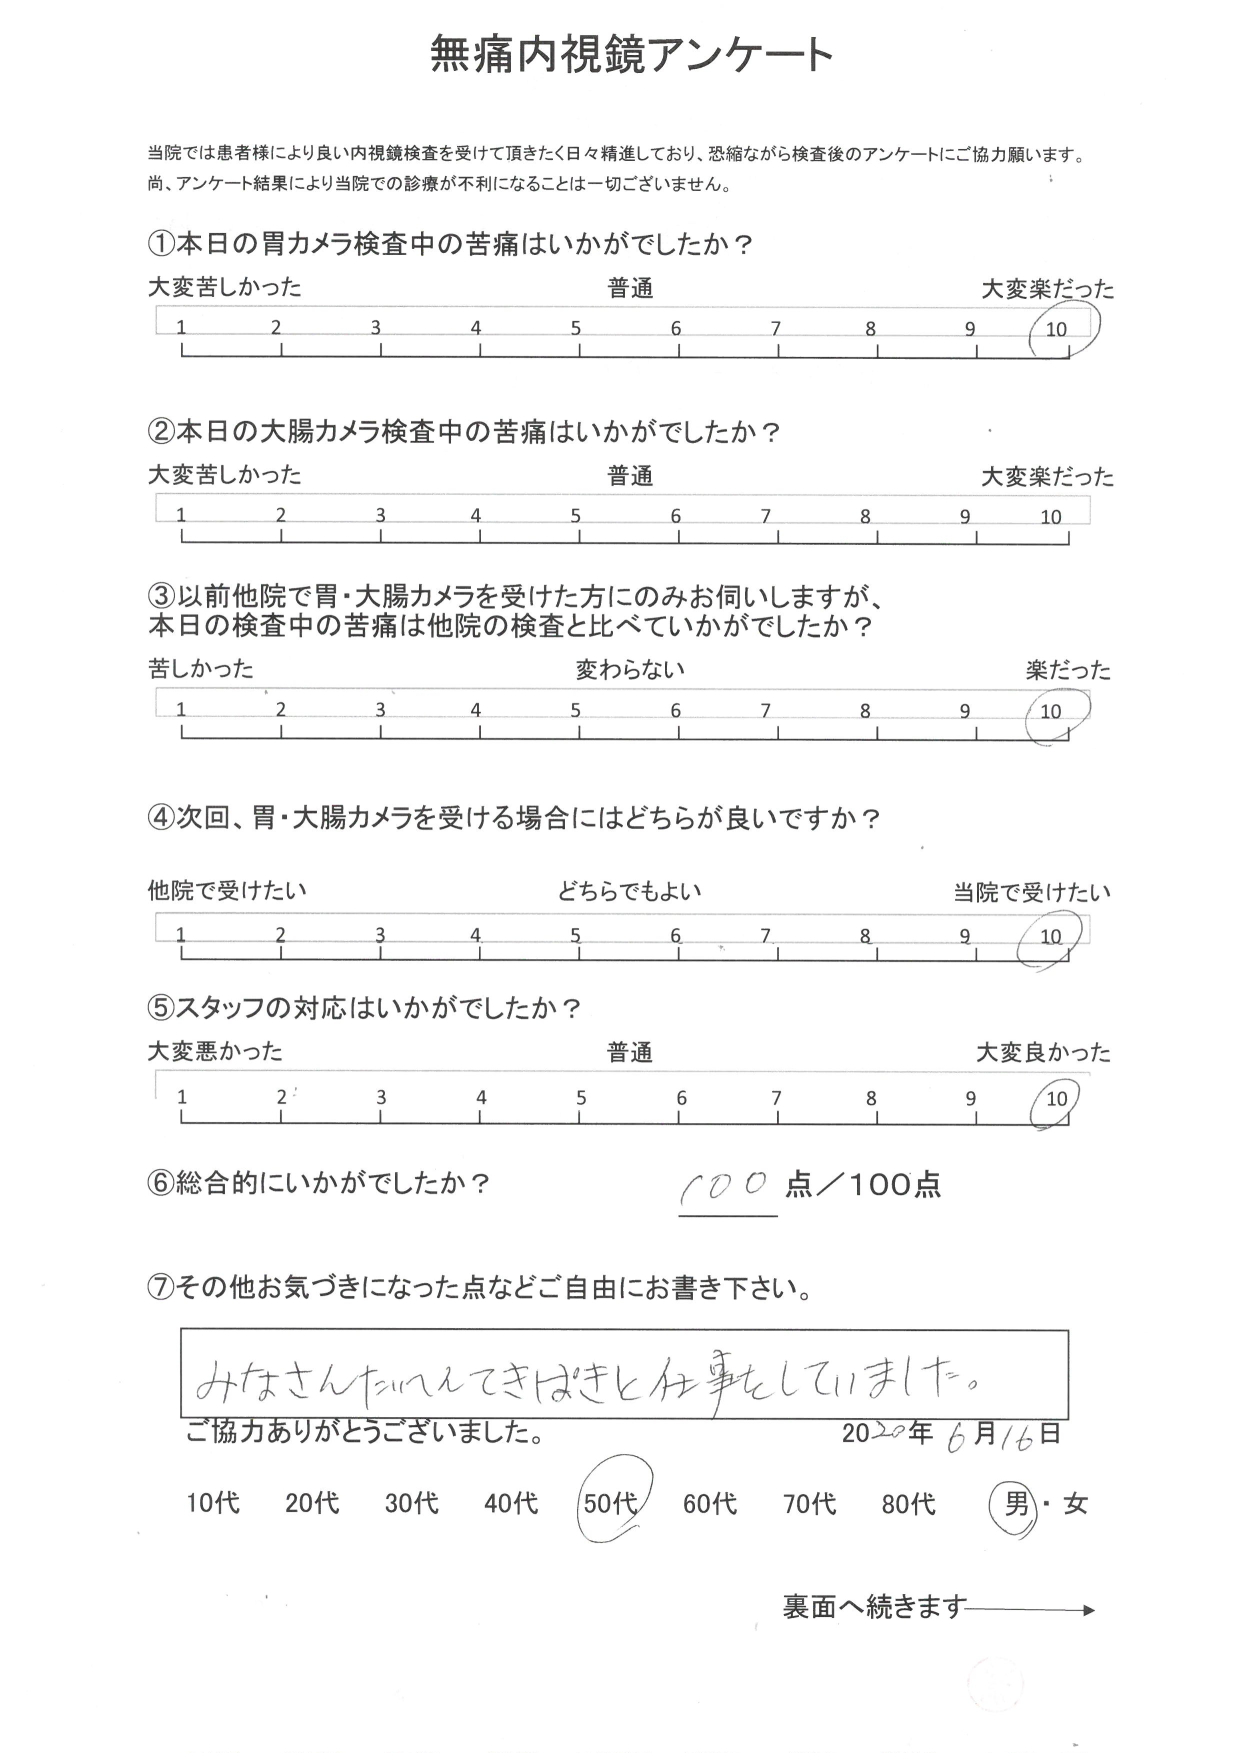 無痛内視鏡アンケート
当院では患者様により良い内視鏡検査を受けて頂きたく日々精進しており、恐縮ながら検査後のアンケートにご協力願います。
尚、アンケート結果により当院での診療が不利になることは一切ございません。
①本日の胃カメラ検査中の苦痛はいかがでしたか？
大変苦しかった 普通 大変楽だった
1 2 3 4 5 6 7 8 9 10
②本日の大腸カメラ検査中の苦痛はいかがでしたか？
大変苦しかった 普通 大変楽だった
1 2 3 4 5 6 7 8 9 10
③以前他院で胃・大腸カメラを受けた方にのみお伺いしますが、
本日の検査中の苦痛は他院の検査と比べていかがでしたか？
苦しかった 変わらない 楽だった
1 2 3 4 5 6 7 8 9 10
④次回、胃・大腸カメラを受ける場合にはどちらが良いですか？
他院で受けたい どちらでもよい 当院で受けたい
1 2 3 4 5 6 7 8 9 10
⑤スタッフの対応はいかがでしたか？
大変悪かった 普通 大変良かった
1 2 3 4 5 6 7 8 9 10
⑥総合的にいかがでしたか？ 100 点／100点
⑦その他お気づきになった点などご自由にお書き下さい。
みなさんたいへんてきぱきと仕事をしていました。
ご協力ありがとうございました。 2020年 6月16日
10代 20代 30代 40代 50代 60代 70代 80代 男・女
裏面へ続きます